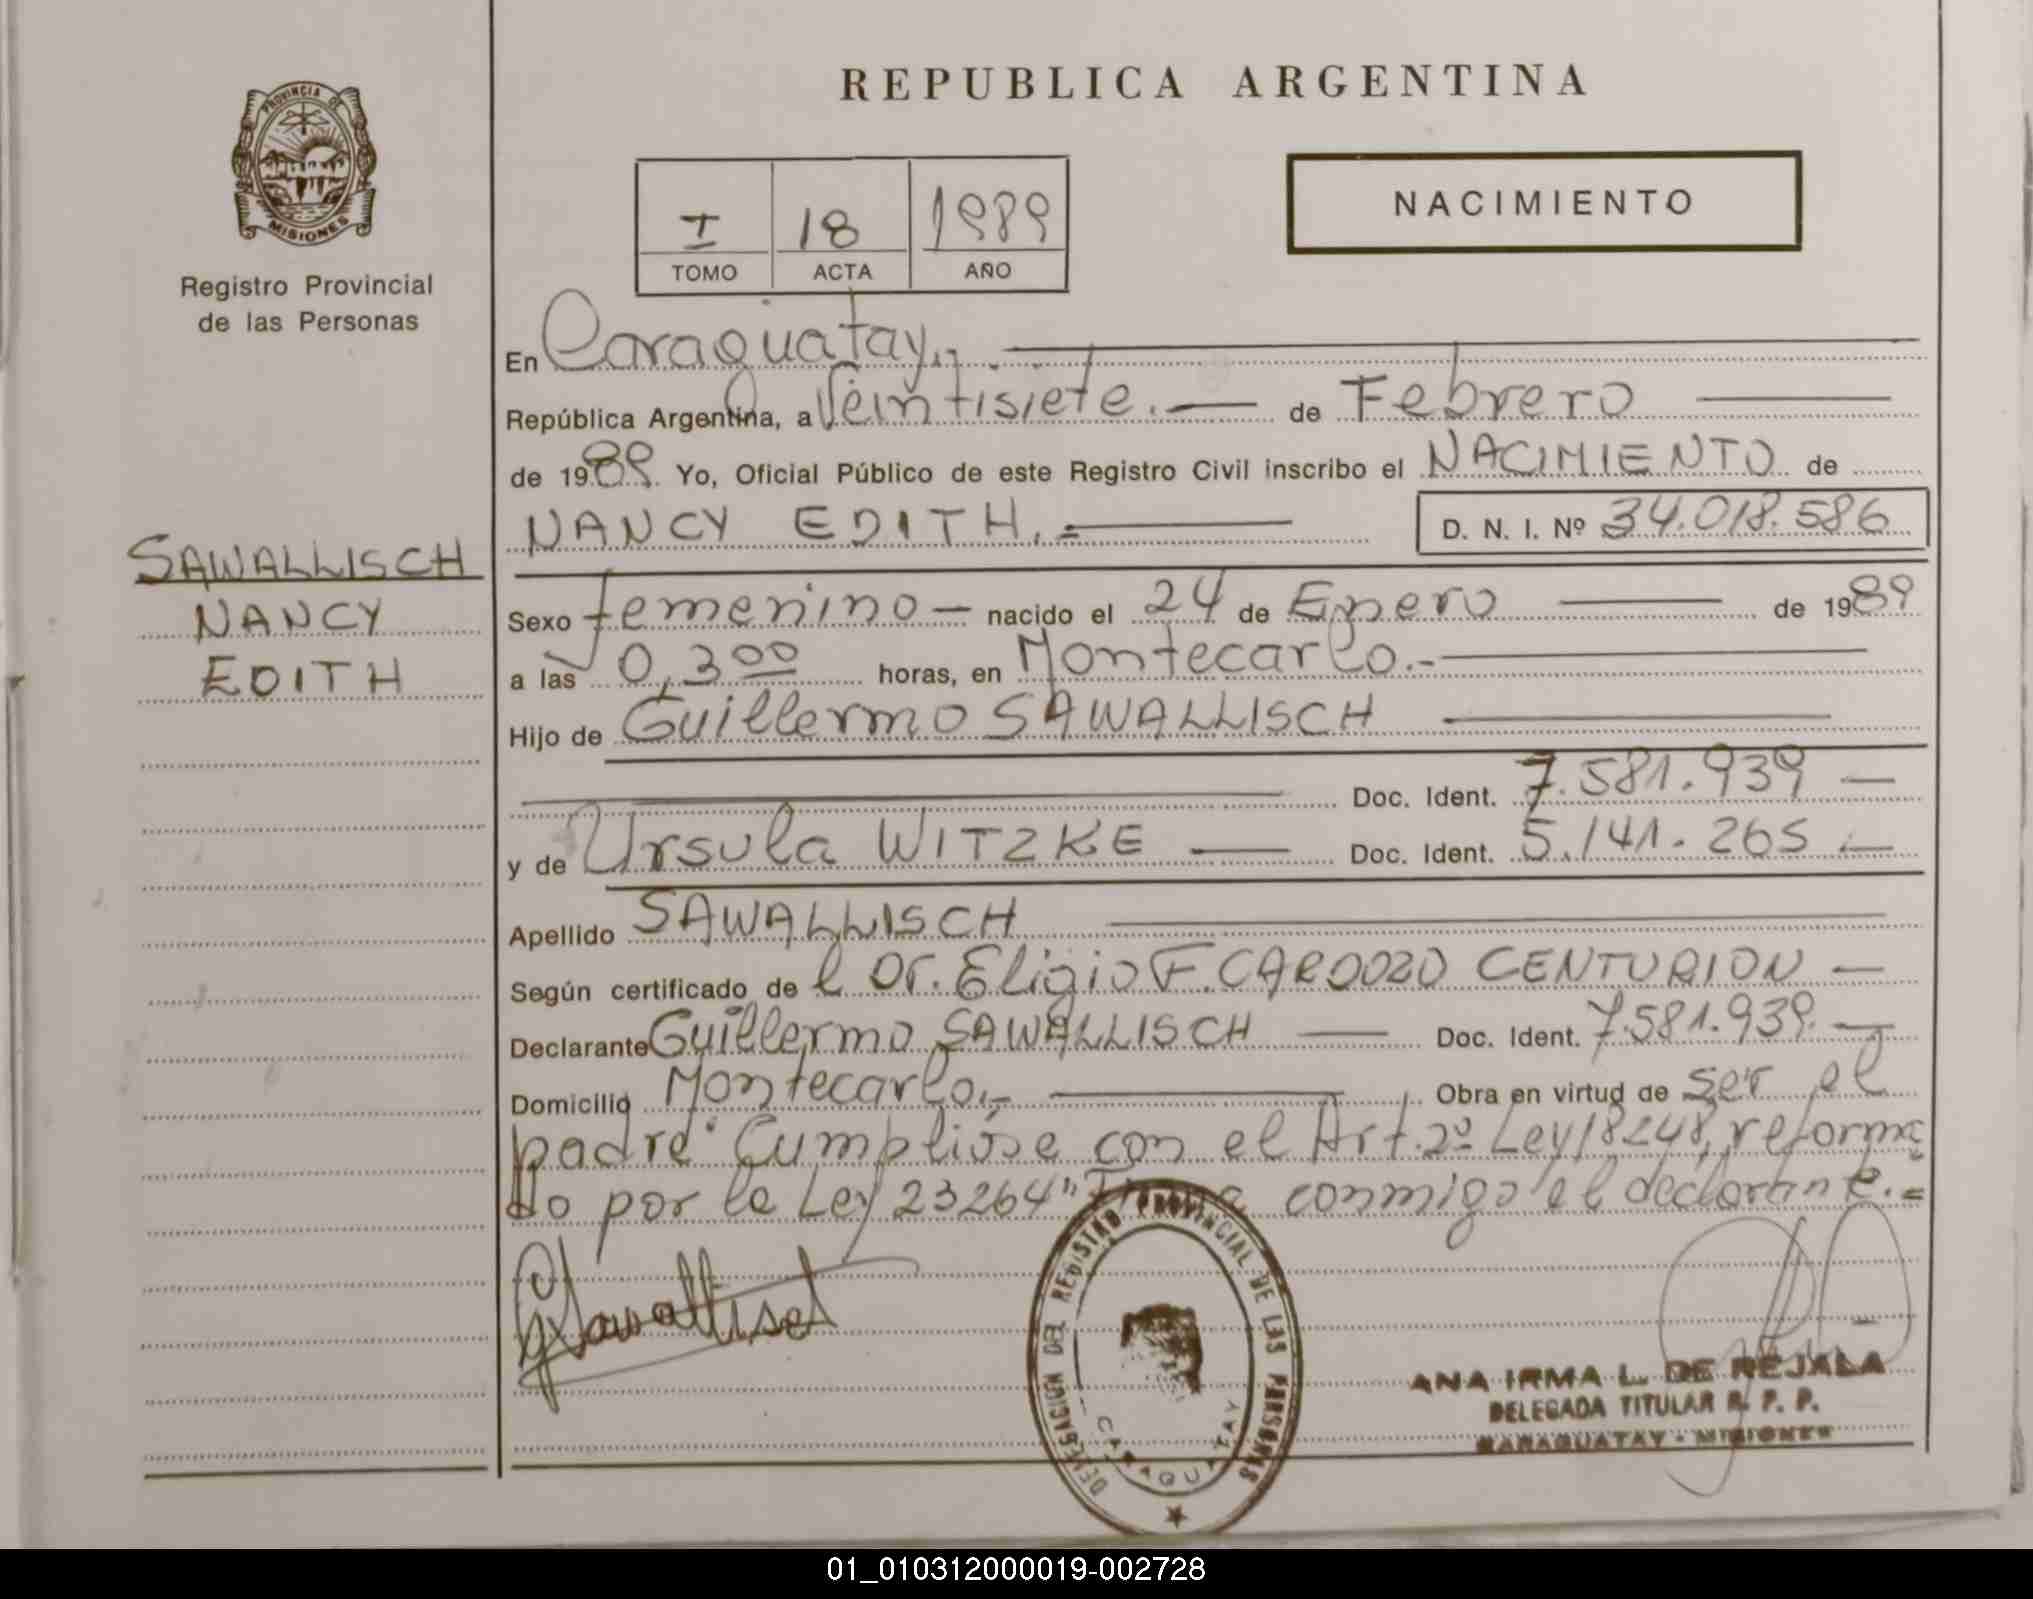 PROVINCIA DE
MISIONES
Registro Provincial
de las Personas
SAWALLISCH
NANCY
EDITH
REPUBLICA ARGENTINA
I 18 1989
TOMO ACTA AÑO
NACIMIENTO
En Caraguatay.-
República Argentina, a Veintisiete.- de Febrero
de 1989. Yo, Oficial Público de este Registro Civil inscribo el NACIMIENTO de
NANCY EDITH.= D. N. I. Nº 34.018.586
Sexo femenino- nacido el 24 de Enero de 1989
a las 0,300 horas, en Montecarlo.-
Hijo de Guillermo SAWALLISCH
Doc. Ident. 7.581.939-
y de Ursula WITZKE Doc. Ident. 5.141.265.-
Apellido SAWALLISCH
Según certificado de l Dr. Eligio F. CARDOZO CENTURION-
Declarante Guillermo SAWALLISCH Doc. Ident. 7.581.939.-
Domicilio Montecarlo.- Obra en virtud de ser el
padre "Cumplióse con el Art. 2º Ley 18248, reforma
do por la Ley 23264" Firma conmigo el declarante.=
GSawallisch
DELEGACION DEL REGISTRO PROVINCIAL DE LAS PERSONAS
CARAGUATAY
ANA IRMA L. DE REJALA
DELEGADA TITULAR R. P. P.
CARAGUATAY - MISIONES
01_010312000019-002728